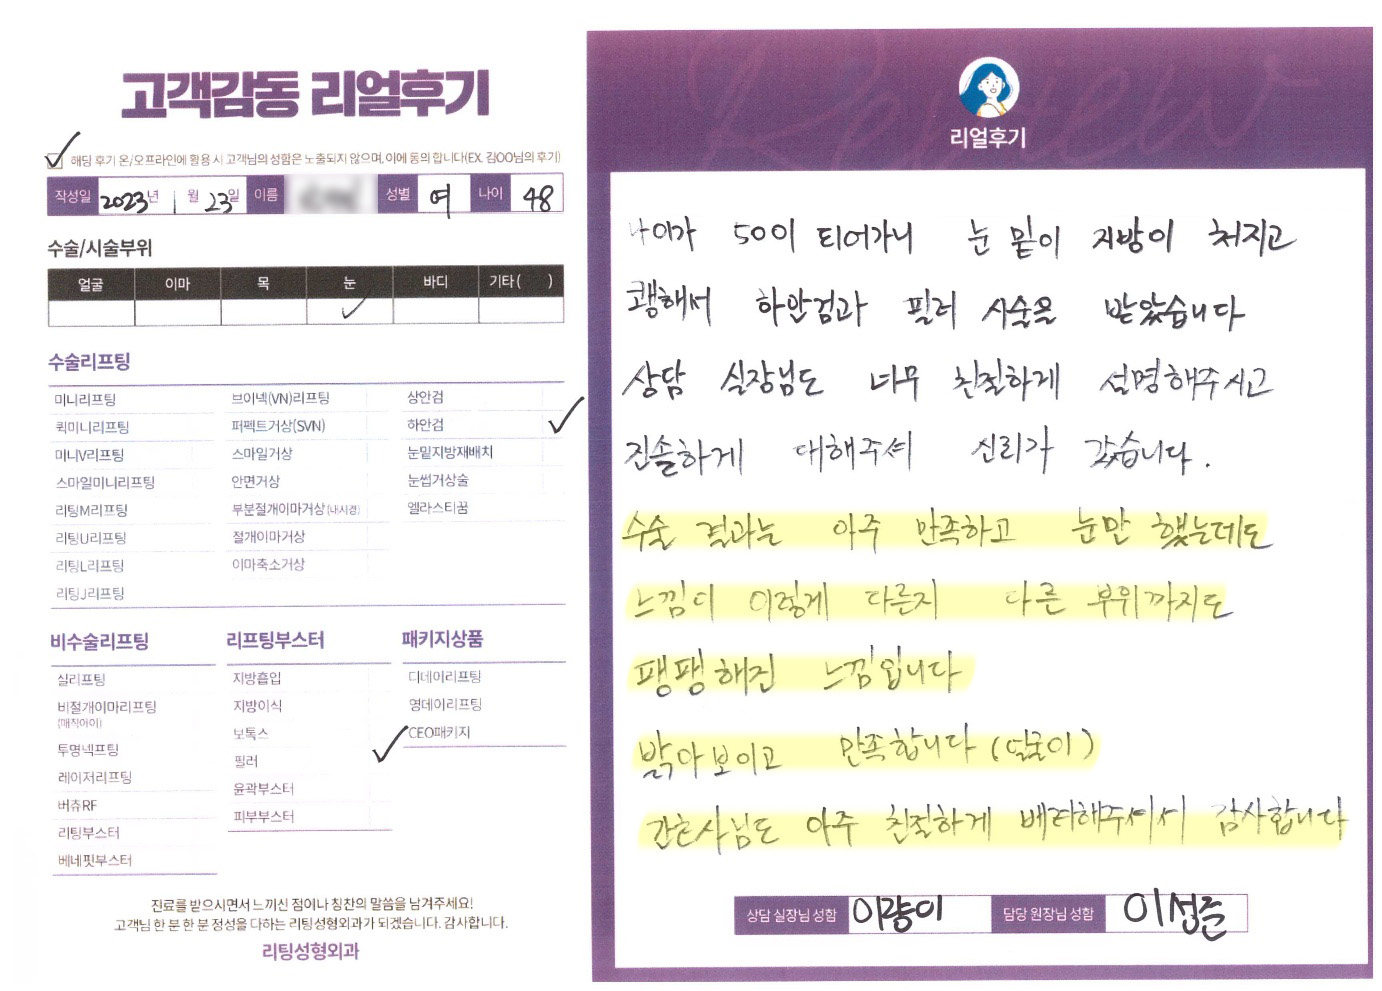 고객감동 리얼후기
해당 후기 온/오프라인에 활용 시 고객님의 성함은 노출되지 않으며, 이에 동의 합니다(EX. 김OO님의 후기)
작성일 2023년 1월 23일 이름 성별 여 나이 48
수술/시술부위
얼굴 이마 목 눈 바디 기타( )
수술리프팅
미니리프팅 브이넥(VN)리프팅 상안검
퀵미니리프팅 퍼펙트거상(SVN) 하안검
미니V리프팅 스마일거상 눈밑지방재배치
스마일미니리프팅 안면거상 눈썹거상술
리팅M리프팅 부분절개이마거상(내시경) 엘라스티꿈
리팅U리프팅 절개이마거상
리팅L리프팅 이마축소거상
리팅J리프팅
비수술리프팅
실리프팅
비절개이마리프팅
(매직아이)
투명넥프팅
레이저리프팅
버츄RF
리팅부스터
베네핏부스터
리프팅부스터
지방흡입
지방이식
보톡스
필러
윤곽부스터
피부부스터
패키지상품
디데이리프팅
영데이리프팅
CEO패키지
진료를 받으시면서 느끼신 점이나 칭찬의 말씀을 남겨주세요!
고객님 한 분 한 분 정성을 다하는 리팅성형외과가 되겠습니다. 감사합니다.
리팅성형외과
Review
리얼후기
나이가 50이 되어가니 눈 밑이 지방이 처지고
퀭해서 하안검과 필러 시술을 받았습니다
상담 실장님도 너무 친절하게 설명해주시고
진솔하게 대해주셔 신뢰가 갔습니다.
수술 결과는 아주 만족하고 눈만 했는데도
느낌이 이렇게 다른지 다른 부위까지도
팽팽해진 느낌입니다
밝아보이고 만족합니다 (얼굴이)
간호사님도 아주 친절하게 배려해주셔서 감사합니다
상담 실장님 성함 이랑이 담당 원장님 성함 이성준